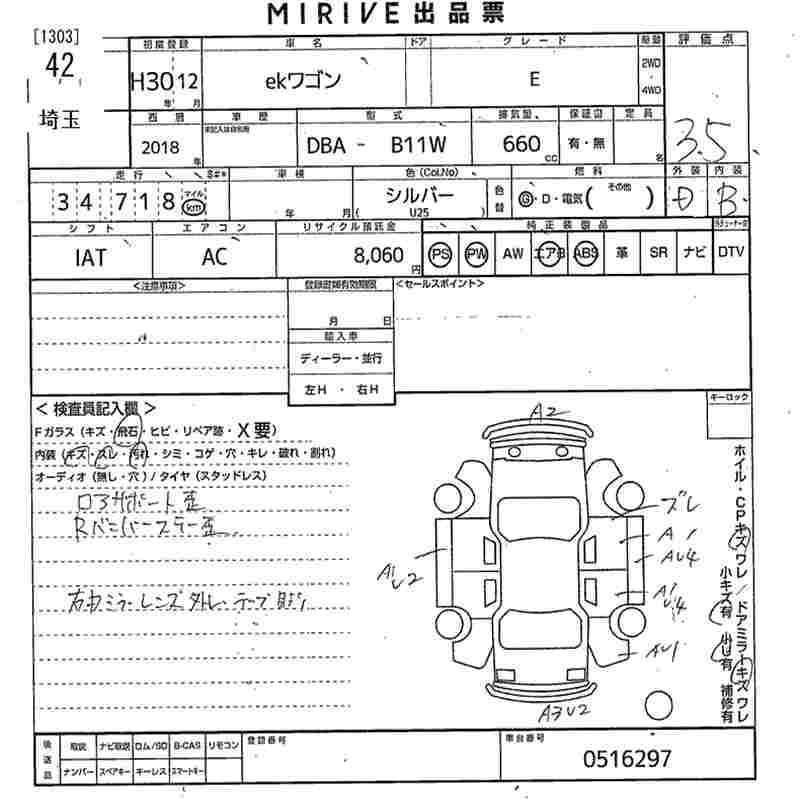 MIRIVE 出品票
[1303]
42
埼玉
初度登録
車名
ドア
グレード
駆動
評価点
H30 12
年 月
ekワゴン
E
2WD
・
4WD
3.5
西暦
車歴
型式
排気量
保証書
定員
2018
年
未記入は自家用
DBA - B11W
660
CC
有・無
名
走行
車検
色(Col.No)
燃料
外装
内装
34,718
マイル
km
年 月
シルバー
( U25 )
色替
G・D・電気( その他 )
D
B
シフト
エアコン
リサイクル預託金
純正装備品
IAT
AC
8,060
円
PS PW AW エアB ABS 革 SR ナビ DTV
<注意事項>
登録書類有効期限
<セールスポイント>
月 日
輸入車
ディーラー・並行
左H ・ 右H
キーロック
< 検査員記入欄 >
Fガラス (キズ・飛石・ヒビ・リペア跡・X要)
内装 (キズ・スレ・汚れ・シミ・コゲ・穴・キレ・破れ・割れ)
オーディオ (無し・穴) / タイヤ (スタッドレス)
ロアサポート歪
右ドアミラーレンズ外レテープ貼り
A2
ズレ
A1
AU4
A1
U2
A1
U4
AU1
A3 U2
ホイル・CPキズワレ/ドアミラーキズワレ
小キズ有 小U有 補修有
後送品
取説 ナビ取説 ロム/SD B-CAS リモコン
ナンバー スペアキー キーレス スマートキー
登録番号
車台番号
0516297